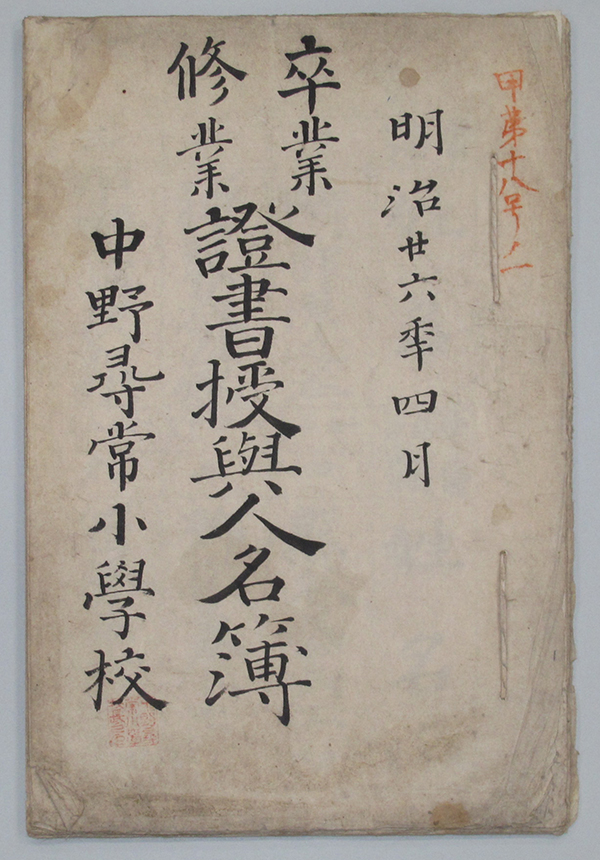 甲第十八号ノ一
明治廿六年四月
卒業
修業
證書授與人名簿
中野尋常小學校